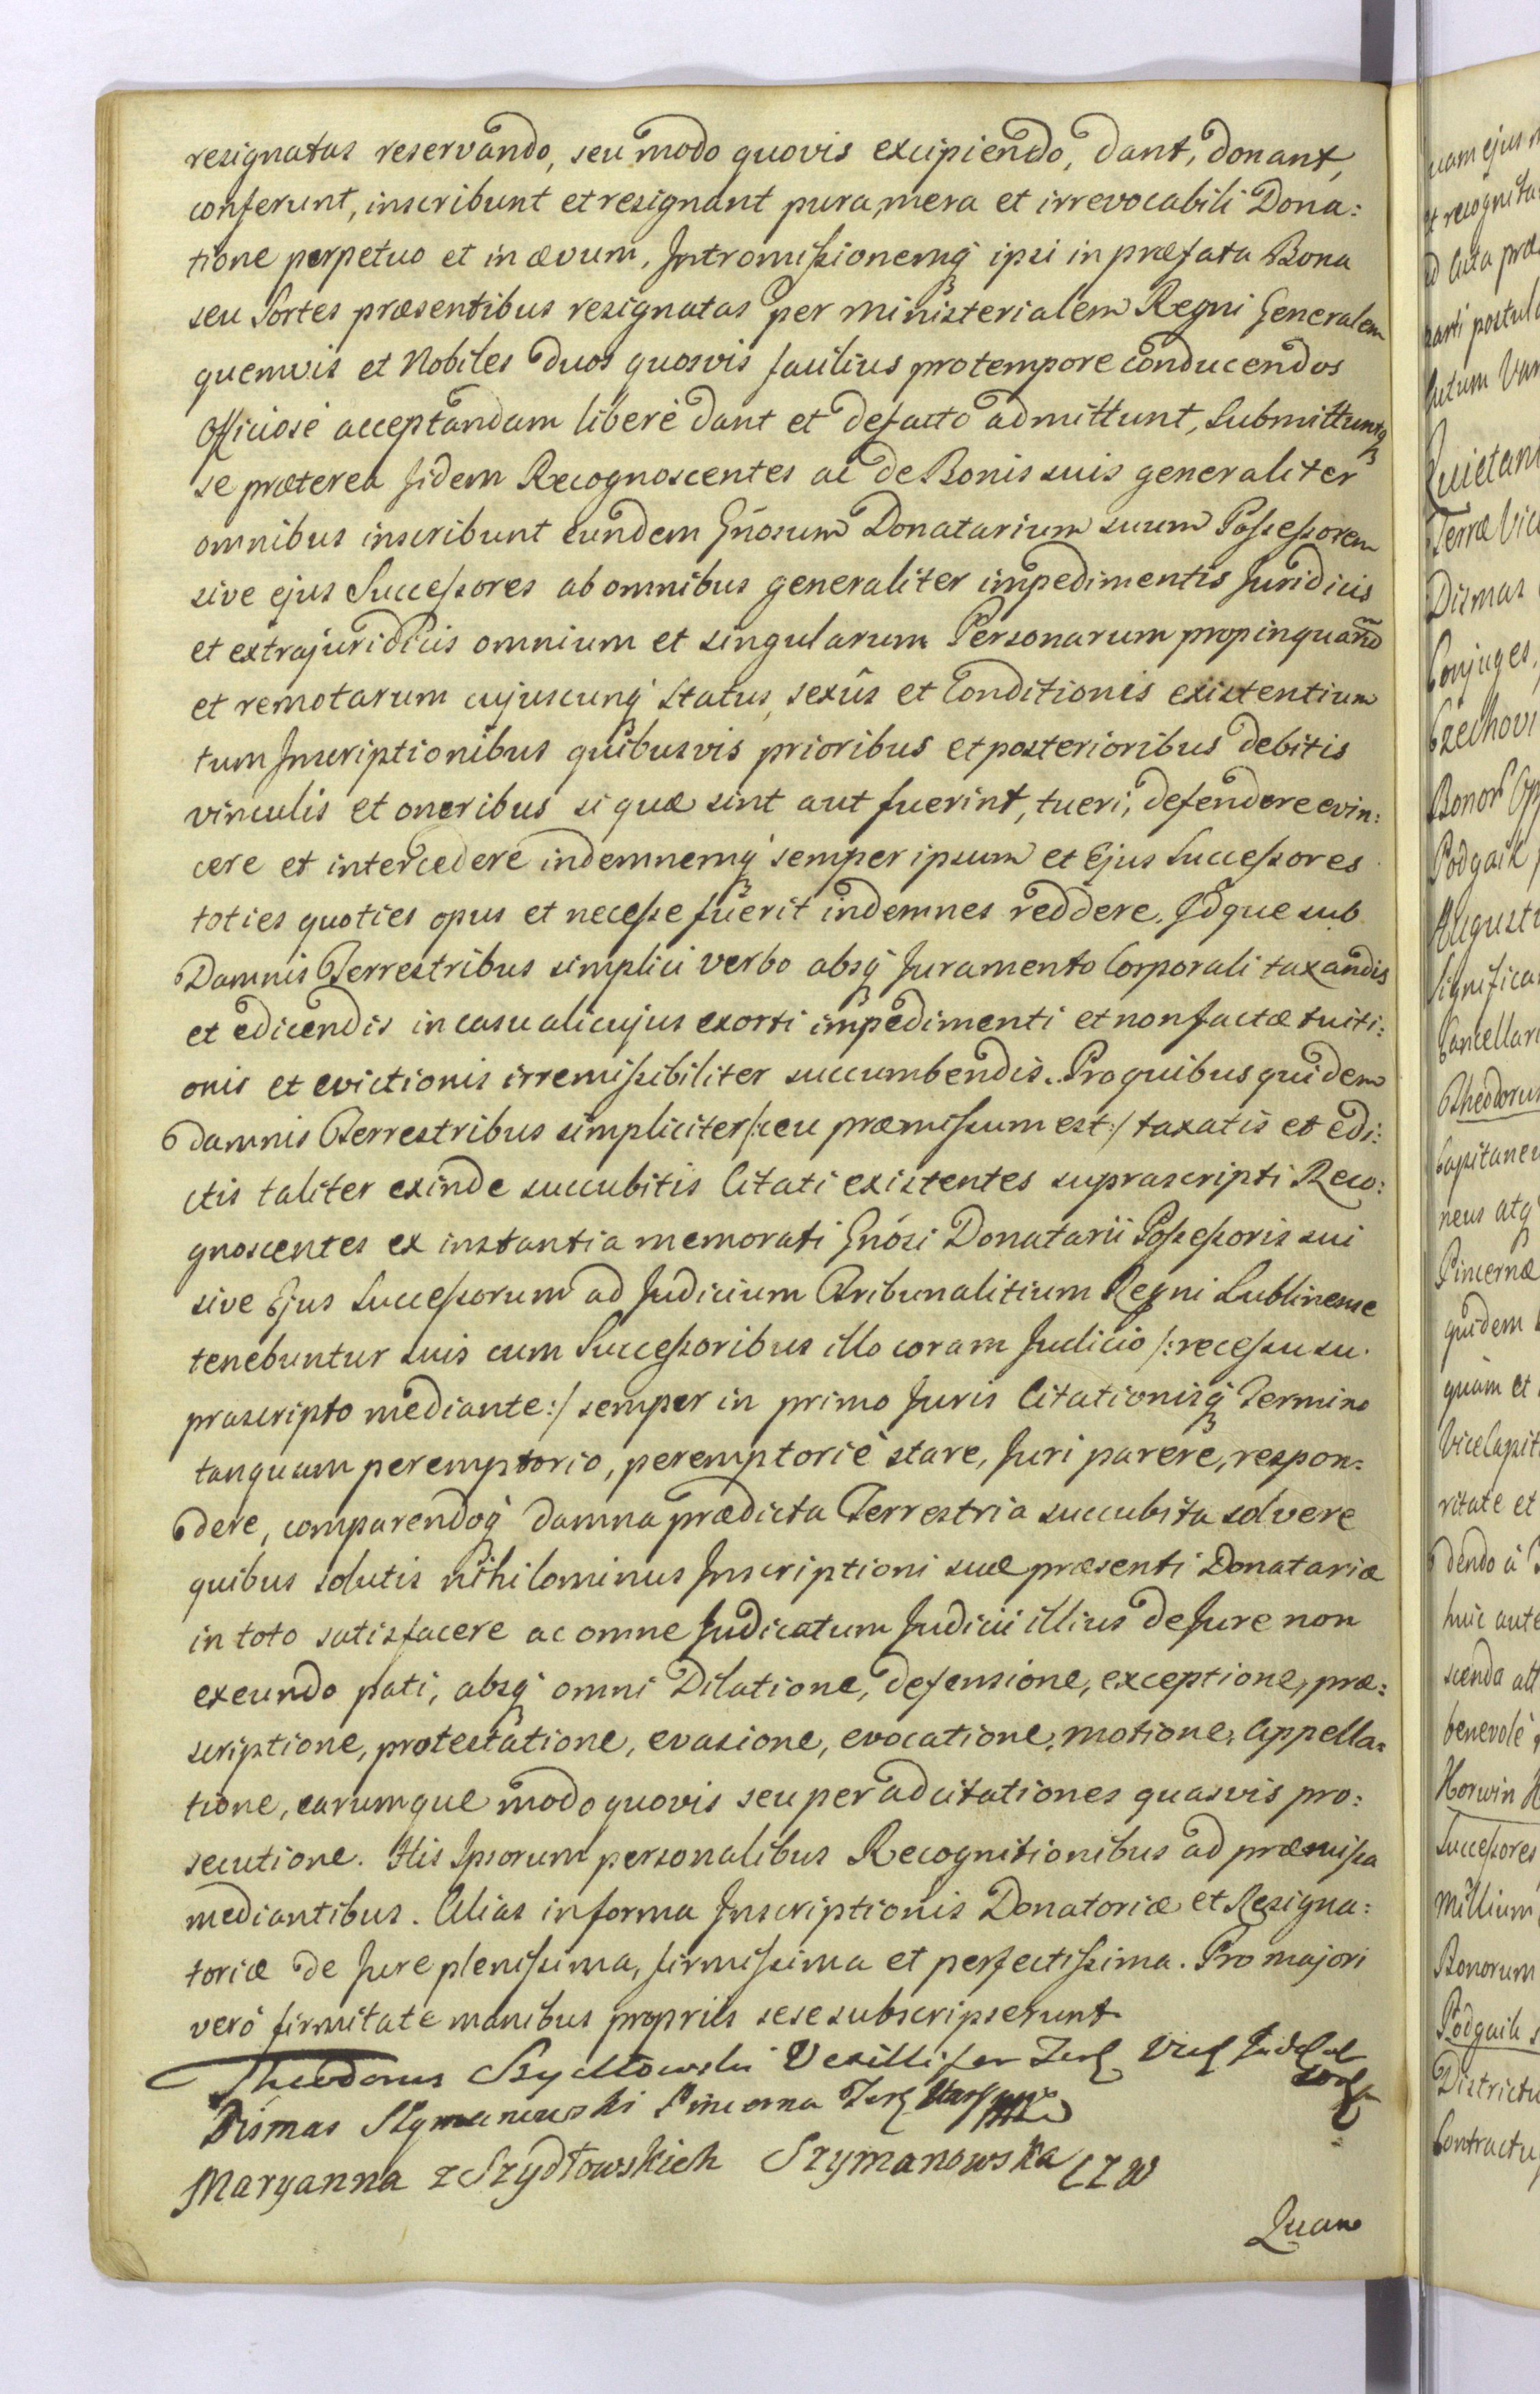 resignatas reservando, seu modo quovis excipiendo, dant, donant,
conferunt, inscribunt et resignant pura, mera et irrevocabili Dona:
tione perpetuo et in ævum, Intromissionemq́ ipsi in præfata Bona
seu Sortes præsentibus resignatas per Ministerialem Regni Generalem
quemvis et Nobiles duos quosvis facilius protempore conducendos
Officiose acceptandam liberè dant et defacto admittunt, Submittuntq́
se præterea fidem Recognoscentes ac de Bonis suis generaliter
omnibus inscribunt eundem Gńosum Donatarium suum Possessorem
sive ejus Successores ab omnibus generaliter impedimentis Juridicis
et extrajuridicis omnium et singularum Personarum propinquarũ
et remotarum cujuscunq́ Status, sexûs et Conditionis existentium
tum Inscriptionibus quibusvis prioribus et posterioribus debitis
vinculis et oneribus si quæ sint aut fuerint, tueri, defendere evin:
cere et intercedere indemnemq́ semper ipsum et Ejus Successores
toties quoties opus et necesse fuerit indemnes reddere, Idque sub
Damnis Terrestribus simplici verbo absq́ Juramento Corporali taxandis
et edicendis in casu alicujus exorti impedimenti et non factæ tuiti:
onis et evictionis irremissibiliter succumbendis. Pro quibus quidem
damnis Terrestribus simpliciter /:ceu præmissum est:/ taxatis et edi:
ctis taliter exinde succubitis Citati existentes suprascripti Reco:
gnoscentes ex instantia memorati Gnósi Donatarii Possessoris sui
sive Ejus Successorum ad Judicium Tribunalitium Regni Lublinense
tenebuntur suis cum Successoribus illo coram Judicio /:recessu su.
prascripto mediante:/ semper in primo Juris Citationisq́ Termino
tanquam peremptorio, peremptoriè stare, Juri parere, respon:
dere, comparendoq́ damna prædicta Terrestria succubita solvere
quibus solutis nihilominus Inscriptioni suæ præsenti Donatariæ
in toto satisfacere ac omne Judicatum Judicii illius de Jure non
exeundo pati, absq́ omni Dilatione, defensione, exceptione, præ:
scriptione, protestatione, evasione, evocatione, motione, Appella:
tione, earumque modo quovis seu per adcitationes quasvis pro:
secutione. His Ipsorum personalibus Recognitionibus ad præmissa
mediantibus. Alias in forma Inscriptionis Donatoriæ et Resigna:
toriæ de Jure plenissima, firmissima et perfectissima. Pro majori
verò firmitate manibus propriis sese subscripserunt
Theodorus Szydłowski Vexillifer
Dismas Szymanowski Pincerna
Maryanna z Szydłowskich Szymanowska CZW
Quam
uam ejus
et recognita
ad Acta præ
parti postul
Quietam
Terræ Vic
Dismas
Conjuges,
Czechovi
Bonor̃
Podgaik
Augusti
Significa
Cancellari
Theodorus
Capitaneu
neus atq́
Pincernæ
quidem
quàm et
ViceCapit
ritate et
dendo à
huic aute
scenda att
benevolè
Horwin
Successores
Millium
Bonorum
Podgaik
Districtu
Contractu